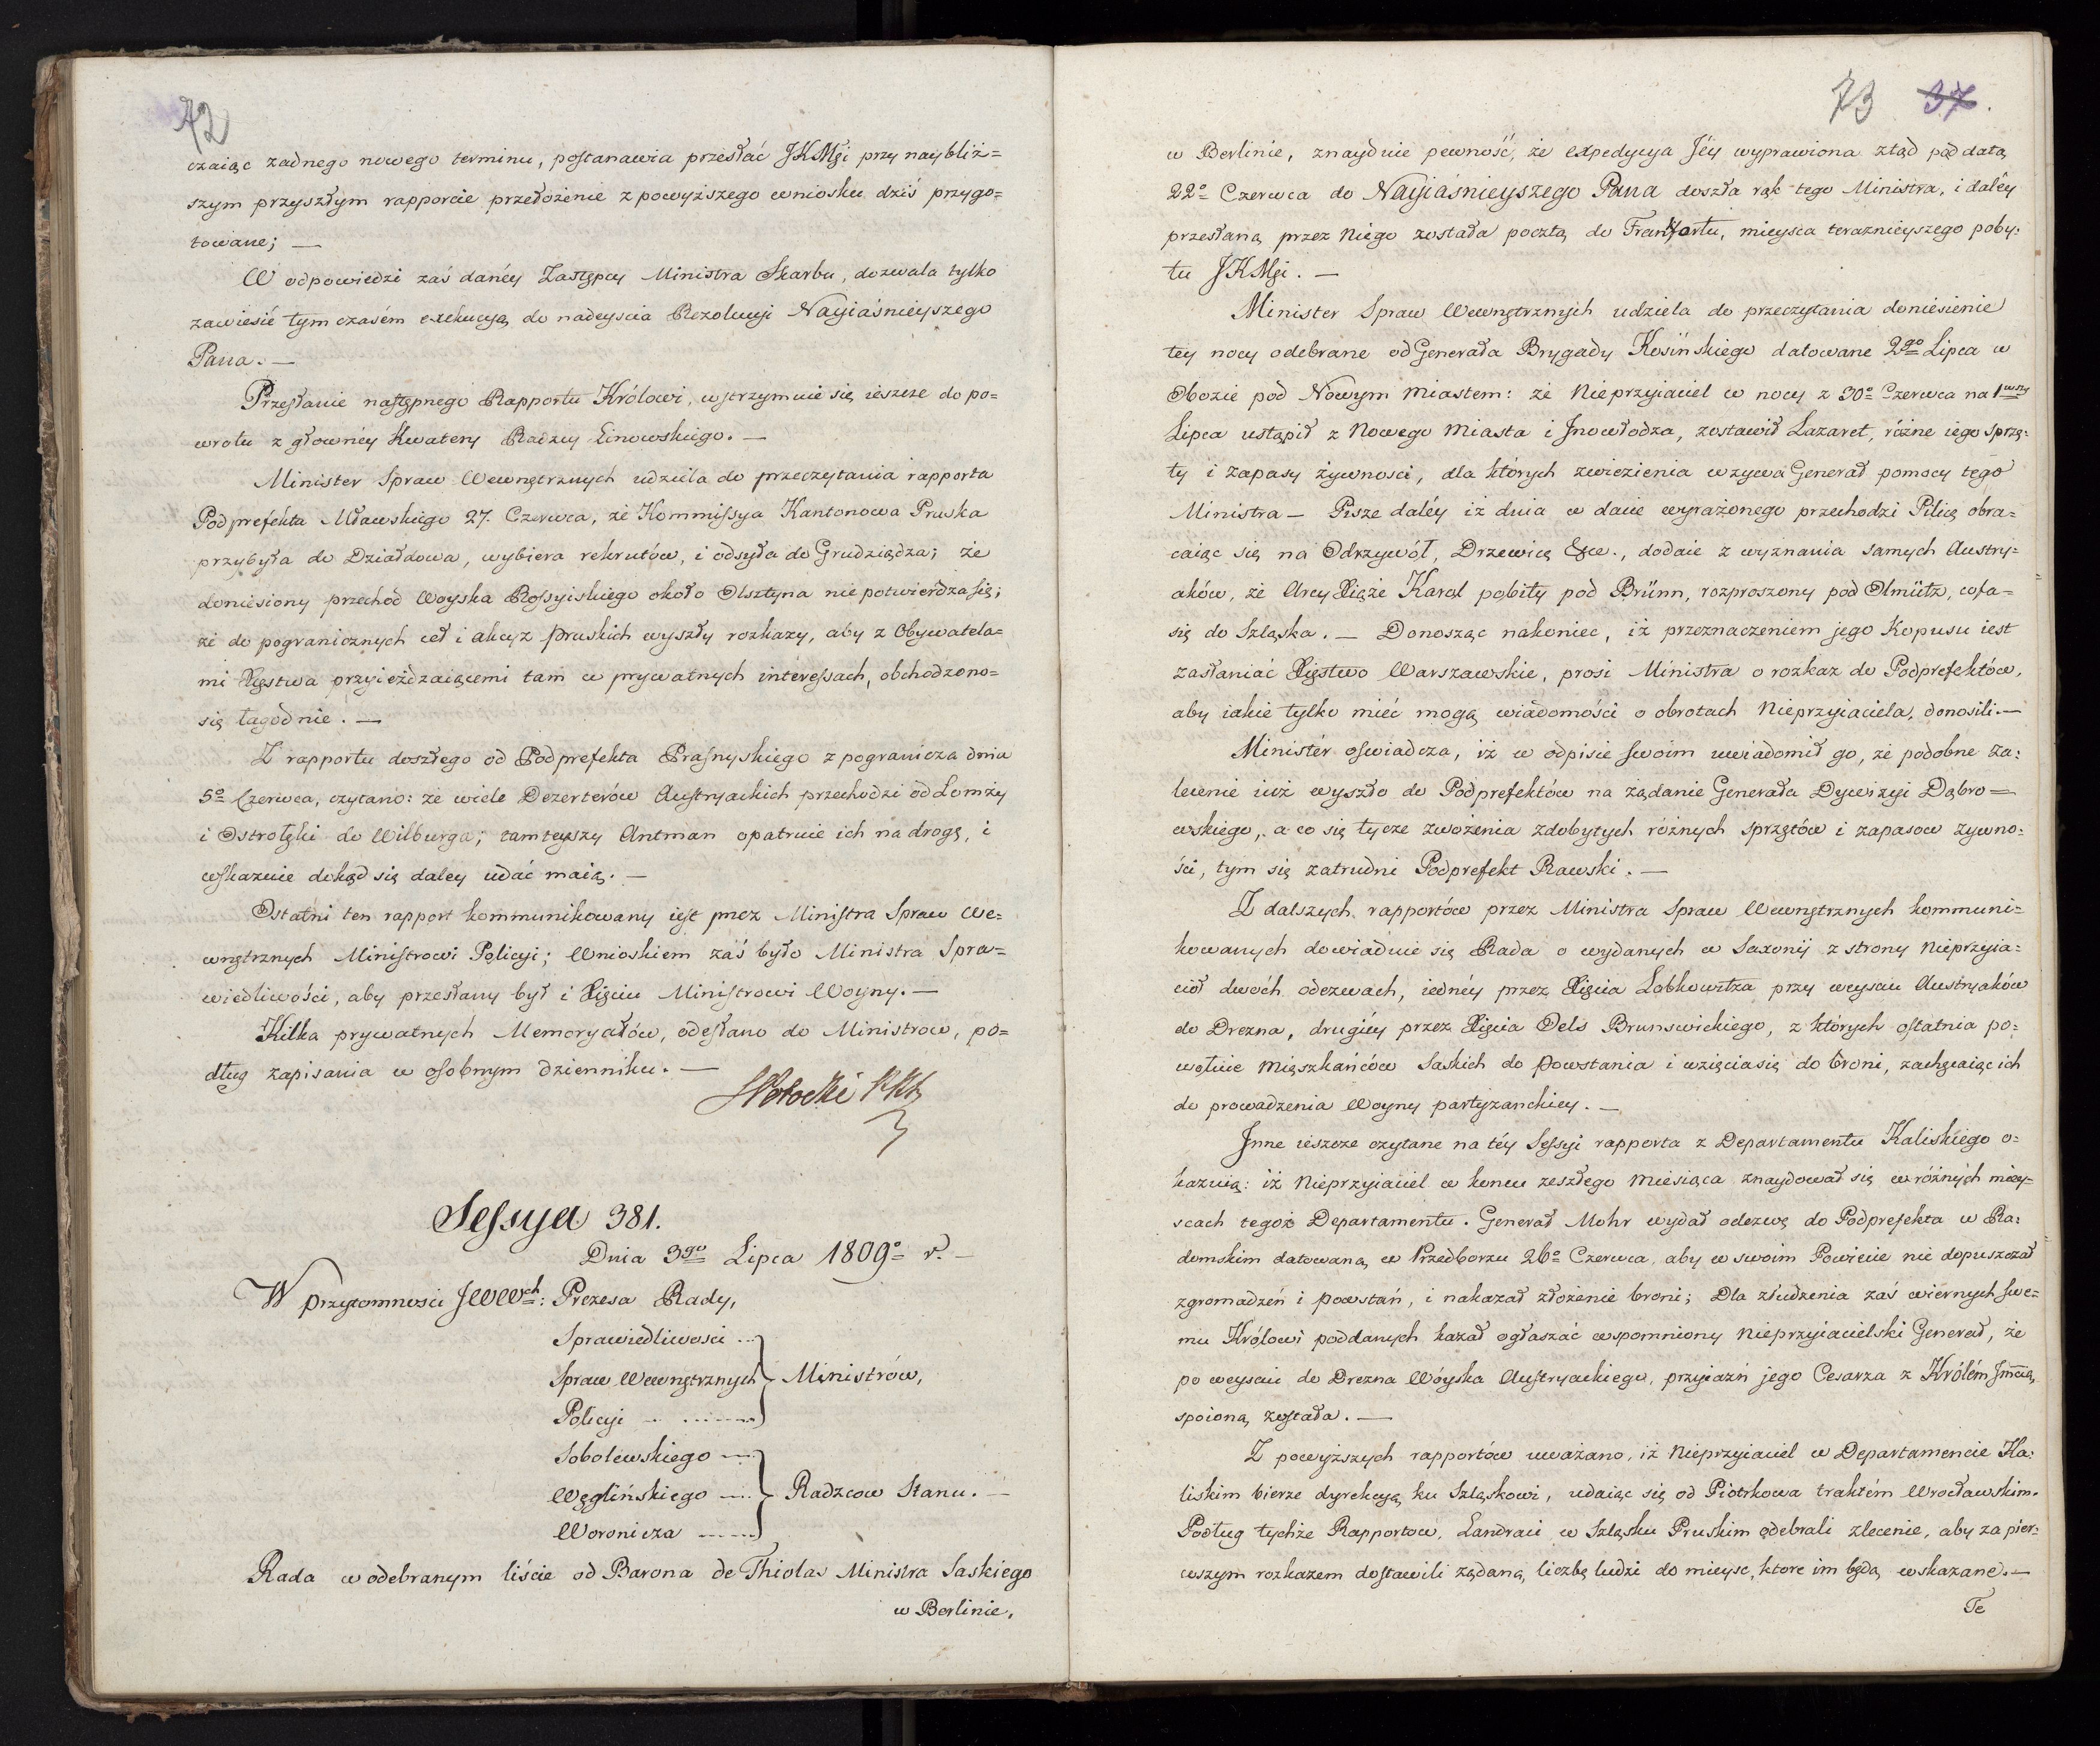 72
czaiąc żadnego nowego terminu, postanawia przesłać JKMci przy naybliż=
szym przyszłym rapporcie przełożenie z powyższego wniosku dziś przygo=
towane; —
W odpowiedzi zaś danéy Zastępcy Ministra Skarbu, dozwala tylko
zawiesić tym czasém exekucyą do nadeyścia Rezolucyi Nayiaśnieyszego
Pana. —
Przesłanie następnego Rapportu Królowi, wstrzymuie się ieszcze do po=
wrotu z główney Kwatery Radzcy Linowskiego. —
Minister Spraw Wewnętrznych udziela do przeczytania rapporta
Podprefekta Mławskiego 27. Czerwca, że Kommissya Kantonowa Pruska
przybyła do Działdowa, wybiera rekrutów, i odsyła do Grudziądza; że
doniesiony przechód Woyska Rossyiskiego około Olsztyna nie potwierdza się;
że do pogranicznych ceł i akcyz pruskich wyszły rozkazy, aby z Obywatela=
mi Xięstwa przyieżdzaiącemi tam w prywatnych interessach, obchodzono=
się łagodnie. —
Z rapportu doszłego od Podprefekta Prasnyskiego z pogranicza dnia
5º Czerwca, czytano: że wiele Dezerterów Austryackich przechodzi od Łomży
i Ostrołęki do Wilburga; tamteyszy Antman opatruie ich na drogę, i
wskazuie dokąd się daley udać maią. —
Ostatni ten rapport kommunikowany iest przez Ministra Spraw We=
wnętrznych Ministrowi Policyi; Wnioskiem zaś było Ministra Spra=
wiedliwości, aby przesłany był i Xięciu Ministrowi Woyny. —
Kilka prywatnych Memoryałów, odesłano do Ministrow, po=
dług zapisania w osobnym dzienniku. —
SPotocki
Sessya 381.
Dnia 3go Lipca 1809º r. —
W przytomności JWWch: Prezesa Rady,
Sprawiedliwości ...
Spraw Wewnętrznych } Ministrów,
Policyi ... ......
Sobolewskiego ....
Węglińskiego .... } Radzcow Stanu. —
Woronicza ......
Rada w odebranym liście od Barona de Thiolas Ministra Saskiego
w Berlinie,
73 37.
w Berlinie, znayduie pewność, że expedycya Jéy wyprawiona ztąd pod datą
22º Czerwca do Nayiaśnieyszego Pana doszła rąk tego Ministra, i daléy
przesłaną przez Niego została pocztą do Frankfortu, mieysca teraznieyszego poby=
tu JKMci. —
Minister Spraw Wewnętrznych udziela do przeczytania doniesienie
tey nocy odebrane od Generała Brygady Kosińskiego datowane 2go Lipca w
Obozie pod Nowym miastem: że Nieprzyiaciel w nocy z 30º Czerwca na 1wszy
Lipca ustąpił z Nowego Miasta i Jnowłodza, zostawił Lazaret, różne iego sprzę=
ty i zapasy żywności, dla których zwiezienia wzywa Generał pomocy tego
Ministra — Pisze daléy iż dnia w dacie wyrażonego przechodzi Pilicę obra=
caiąc się na Odrzywół, Drzewicę &c., dodaie z wyznania samych Austry=
aków, że Arcy Xiąże Karol pobity pod Brünn, rozproszony pod Olmütz, cofa=
się do Szląska. — Donosząc nakoniec, iż przeznaczeniem jego Kopusu iest
zasłaniać Xięstwo Warszawskie, prosi Ministra o rozkaz do Podprefektów,
aby iakie tylko mieć mogą wiadomości o obrotach Nieprzyiaciela, donosili. —
Ministér oswiadcza, iż w odpisie swoim uwiadomił go, że podobne za=
lecenie iuż wyszło do Podprefektów na żądanie Generała Dywizyi Dąbro=
wskiego, a co się tycze zwożenia zdobytych różnych sprzętów i zapasow żywno=
ści, tym się zatrudni Podprefekt Rawski. —
Z dalszych rapportów przez Ministra Spraw Wewnętrznych kommuni=
kowanych dowiaduie się Rada o wydanych w Saxonij z strony Nieprzyia=
ciół dwóch odezwach, iednéy przez Xięcia Lobkowitza przy weyściu Austryaków
do Drezna, drugiéy przez Xięcia Oels Brunswickiego, z których ostatnia po=
wołuie Mięszkańców Saskich do powstania i wzięcia się do broni, zachęcaiąc ich
do prowadzenia Woyny partyzanckiey. —
Jnne ieszcze czytane na téy Sessyi rapporta z Departamentu Kaliskiego o=
kazuią: iż Nieprzyiaciel w koncu zeszłego Miesiąca znaydował się w różnych miey=
scach tegoż Departamentu. Generał Mohr wydał odezwę do Podprefekta w Ra=
domskim datowaną w Przedborzu 26º Czerwca, aby w swoim Powiecie nie dopuszczał
zgromadzeń i powstań, i nakazał złożenie broni; Dla złudzenia zaś wiernych swe=
mu Królowi poddanych kazał ogłaszać wspomniony Nieprzyiacielski Generał, że
po weyściu do Drezna Wóyska Austryackiego, przyiaźń jego Cesarza z Królém Jmcią
spoioną została. —
Z powyższych rapportów uważano, iż Nieprzyiaciel w Departamencie Ka=
liskim bierze dyrekcyą ku Szląskowi, udaiąc się od Piotrkowa traktém Wrocławskim.
Podług tychże Rapportow, Landraci w Szląsku Pruskim odebrali zlecenie, aby za pier=
wszym rozkazem dostawili żądaną liczbę ludzi do mieysc, ktore im będą wskazane. —
Te